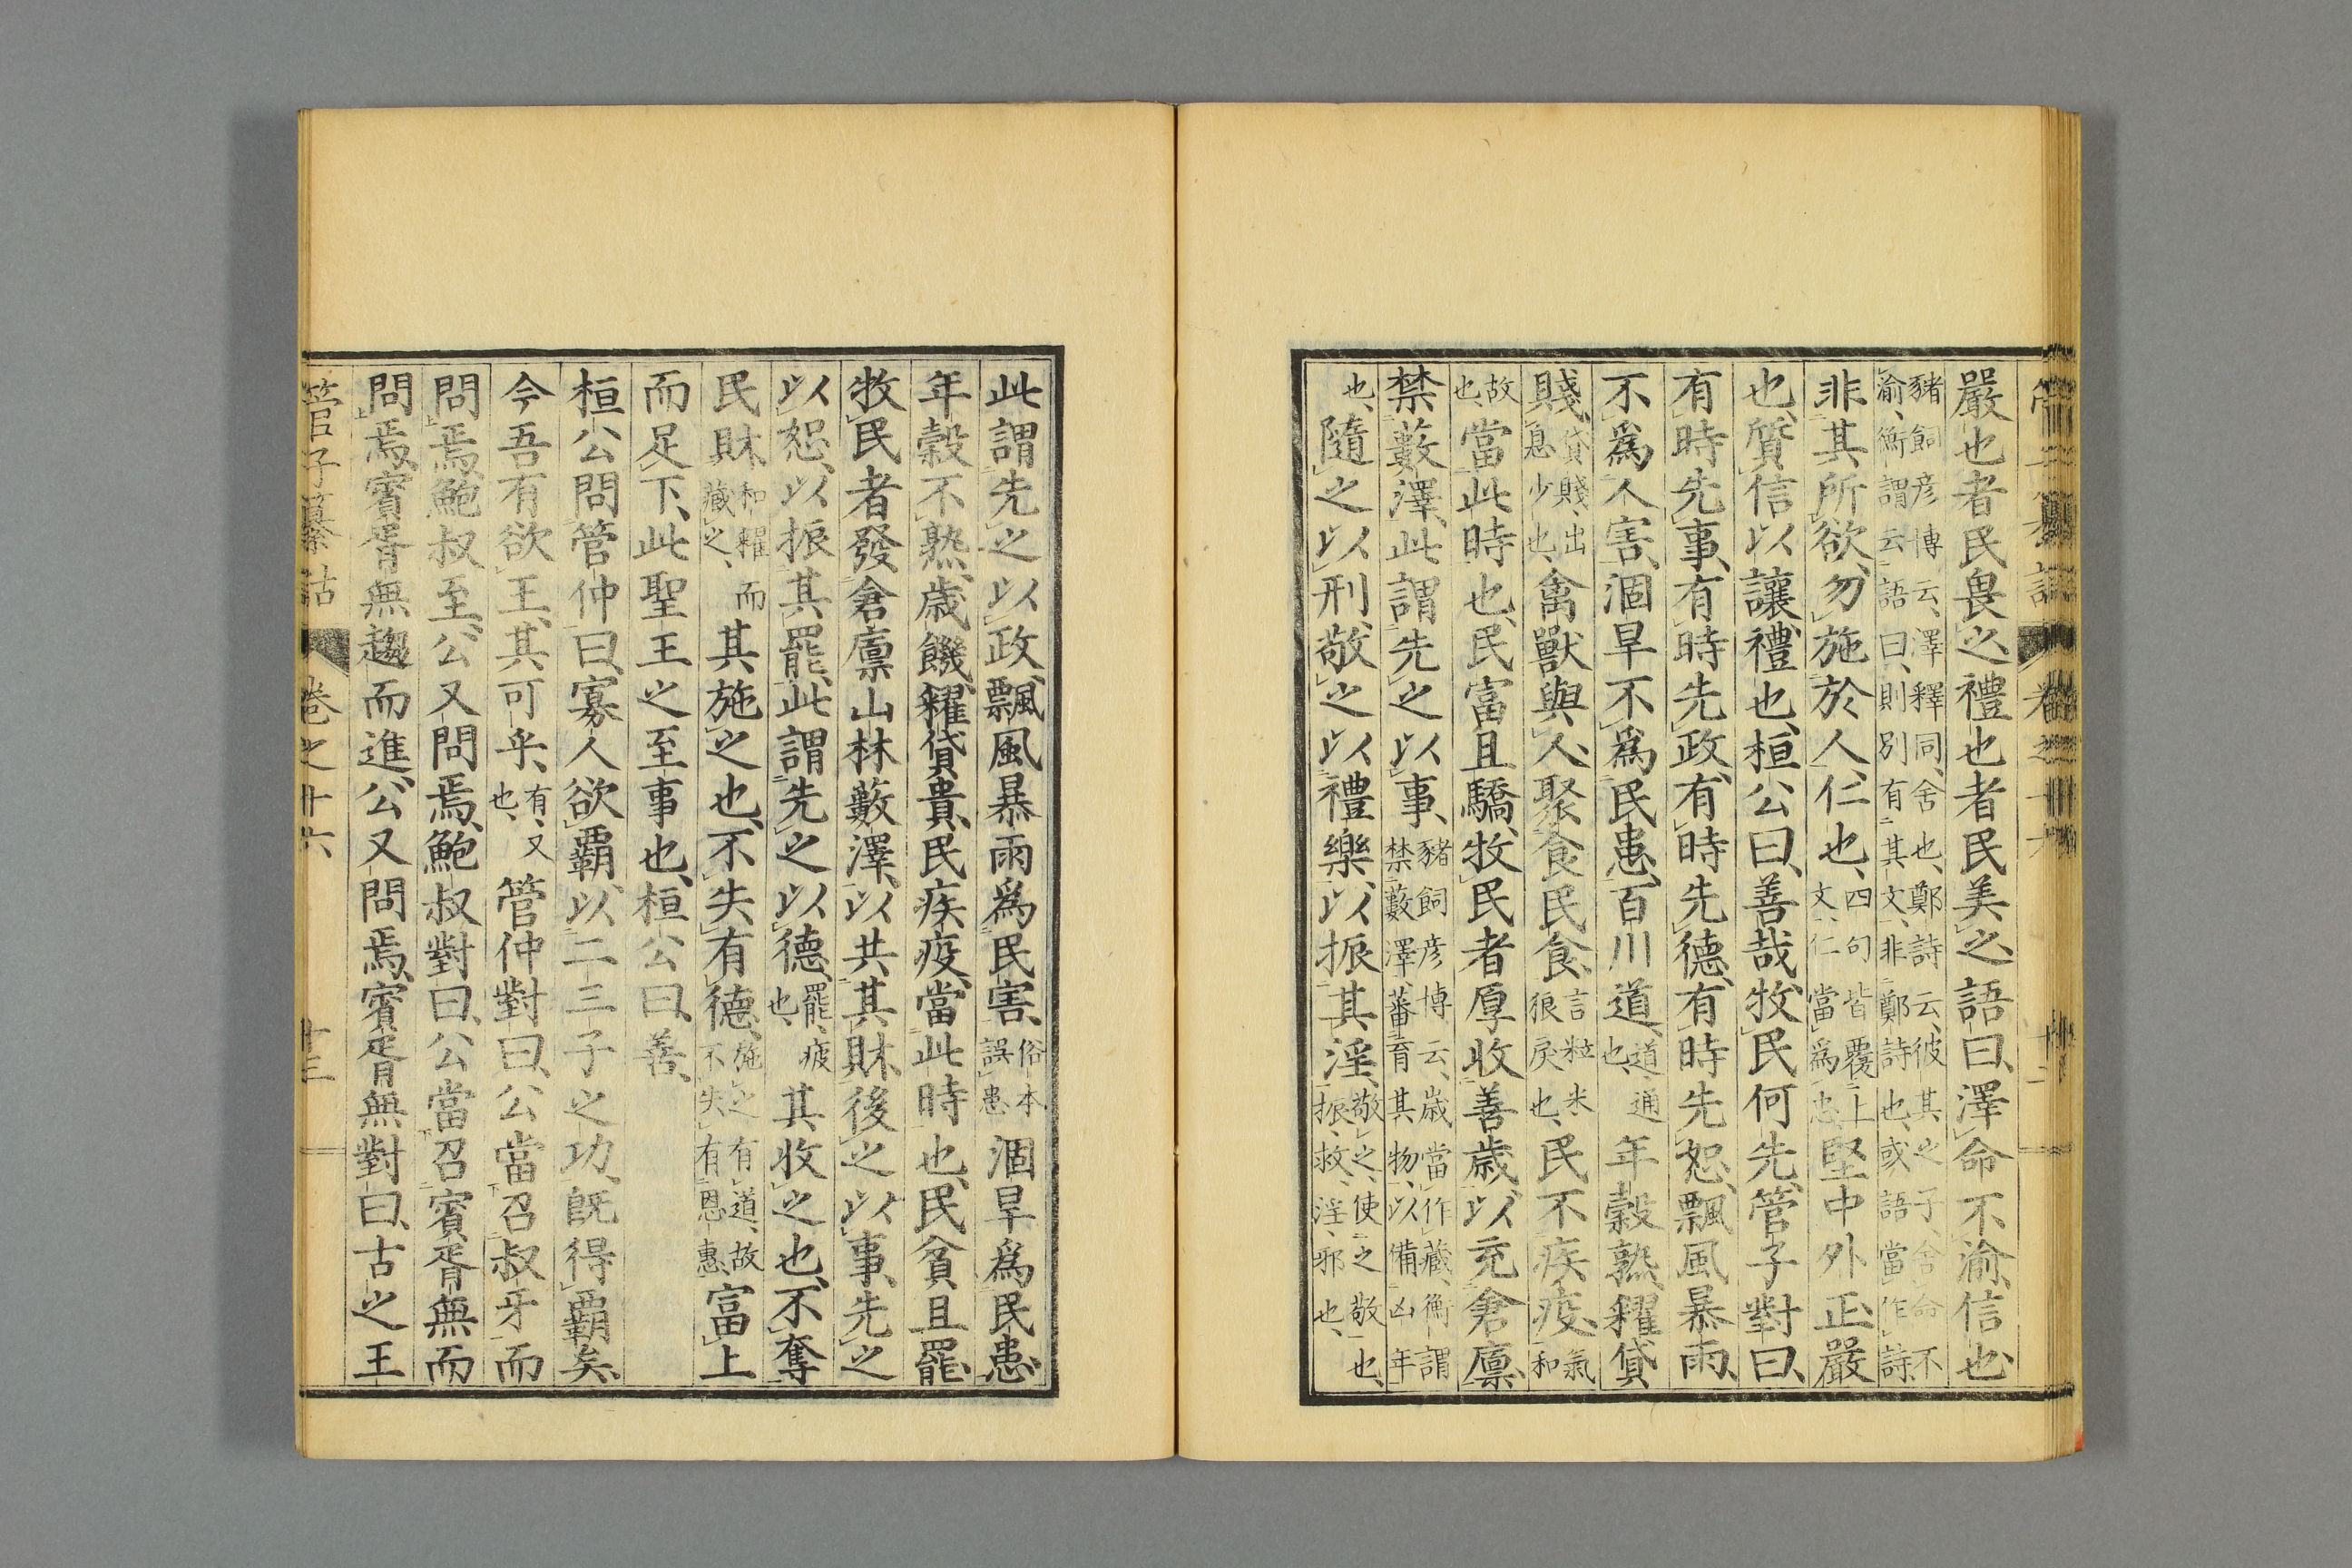 嚴也者民畏之禮也者民美之語曰、澤命不渝、信也、
豬飼彥博云、澤釋同、舍也、鄭詩云、彼其之子、舍命不
渝、衡謂云、語曰、則別有其文、非鄭詩也、或語當作詩、
非其所欲、勿施於人、仁也、四句皆覆上文、仁當爲忠、堅中外正、嚴
也、質信以讓、禮也、桓公曰、善哉、牧民何先、管子對曰、
有時先事、有時先政、有時先德、有時先恕、飄風暴雨、
不爲人害、涸旱不爲民患、百川道、道、通也、年穀熟、糴貸
賤、貸賤、出息少也、禽獸與人聚食民食、言粒米狼戾也、民不疾疫、氣和
故也、當此時也、民富且驕、牧民者厚收善歲、以充倉廩、
禁藪澤、此謂先之以事、豬飼彥博云、歲當作藏、衡謂禁藪澤、蕃育其物、以備凶年
也、隨之以刑、敬之以禮樂、以振其淫、敬之、使之敬也、振、救、淫、邪也、
此謂先之以政、飄風暴雨爲民害、俗本誤患涸旱爲民患、
年穀不熟、歲饑、糴貸貴、民疾疫、當此時也、民貧且罷、
牧民者發倉廩山林藪澤、以共其財、後之以事、先之
以恕、以振其罷、此謂先之以德、罷、疲也、其收之也、不奪
民財、和糴而藏之、其施之也、不失有德、施之有道、故不失有恩惠、富上
而足下、此聖王之至事也、桓公曰、善、
桓公問管仲曰、寡人欲霸、以二三子之功、既得霸矣、
今吾有欲王、其可乎、有、又也、管仲對曰、公當召叔牙而
問焉、鮑叔至、公又問焉、鮑叔對曰、公當召賓胥無而
問焉、賓胥無趨而進、公又問焉、賓胥無對曰、古之王
管子纂詁　卷之十六　十三